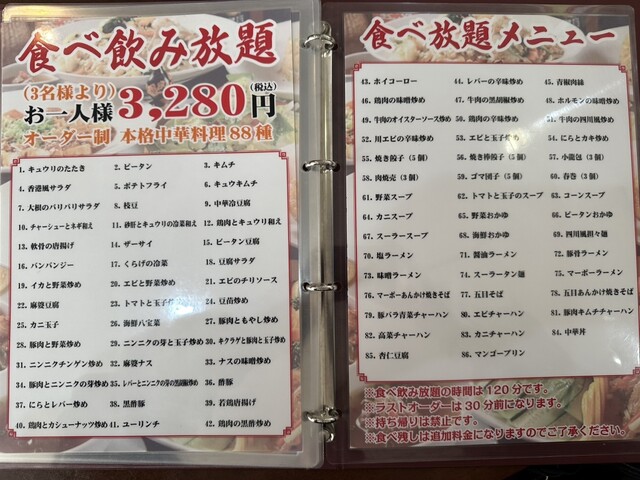 食べ飲み放題
(3名様より)
お一人様3,280円(税込)
オーダー制 本格中華料理88種
1. キュウリのたたき 2. ピータン 3. キムチ
4. 香港風サラダ 5. ポテトフライ 6. キュウキムチ
7. 大根のパリパリサラダ 8. 枝豆 9. 中華冷豆腐
10. チャーシューとネギ和え 11. 砂肝とキュウリの冷菜和え 12. 鶏肉とキュウリ和え
13. 軟骨の唐揚げ 14. ザーサイ 15. ピータン豆腐
16. バンバンジー 17. くらげの冷菜 18. 豆腐サラダ
19. イカと野菜炒め 20. エビと野菜炒め 21. エビのチリソース
22. 麻婆豆腐 23. トマトと玉子炒め 24. 豆苗炒め
25. カニ玉子 26. 海鮮八宝菜 27. 豚肉ともやし炒め
28. 豚肉と野菜炒め 29. ニンニクの芽と玉子炒め 30. キクラゲと豚肉と玉子炒め
31. ニンニクチンゲン炒め 32. 麻婆ナス 33. ナスの味噌炒め
34. 豚肉とニンニクの芽炒め 35. レバーとニンニクの芽の黒胡椒炒め 36. 酢豚
37. にらとレバー炒め 38. 黒酢豚 39. 若鶏唐揚げ
40. 鶏肉とカシューナッツ炒め 41. ユーリンチ 42. 鶏肉の黒酢炒め
食べ放題メニュー
43. ホイコーロー 44. レバーの辛味炒め 45. 青椒肉絲
46. 鶏肉の味噌炒め 47. 牛肉の黒胡椒炒め 48. ホルモンの味噌炒め
49. 牛肉のオイスターソース炒め 50. 鶏肉の辛味炒め 51. 牛肉の四川風炒め
52. 川エビの辛味炒め 53. エビと玉子炒め 54. にらとカキ炒め
55. 焼き餃子(5個) 56. 焼き棒餃子(5個) 57. 小龍包(3個)
58. 肉焼売(3個) 59. ゴマ団子(5個) 60. 春巻(3個)
61. 野菜スープ 62. トマトと玉子のスープ 63. コーンスープ
64. カニスープ 65. 野菜おかゆ 66. ピータンおかゆ
67. スーラースープ 68. 海鮮おかゆ 69. 四川風担々麺
70. 塩ラーメン 71. 醤油ラーメン 72. 豚骨ラーメン
73. 味噌ラーメン 74. スーラータン麺 75. マーボーラーメン
76. マーボーあんかけ焼きそば 77. 五目そば 78. 五目あんかけ焼きそば
79. 豚バラ青菜チャーハン 80. エビチャーハン 81. 豚肉キムチチャーハン
82. 高菜チャーハン 83. カニチャーハン 84. 中華丼
85. 杏仁豆腐 86. マンゴープリン
※食べ飲み放題の時間は120分です。
※ラストオーダーは30分前になります。
※持ち帰りは禁止です。
※食べ残しは追加料金になりますのでご了承ください。